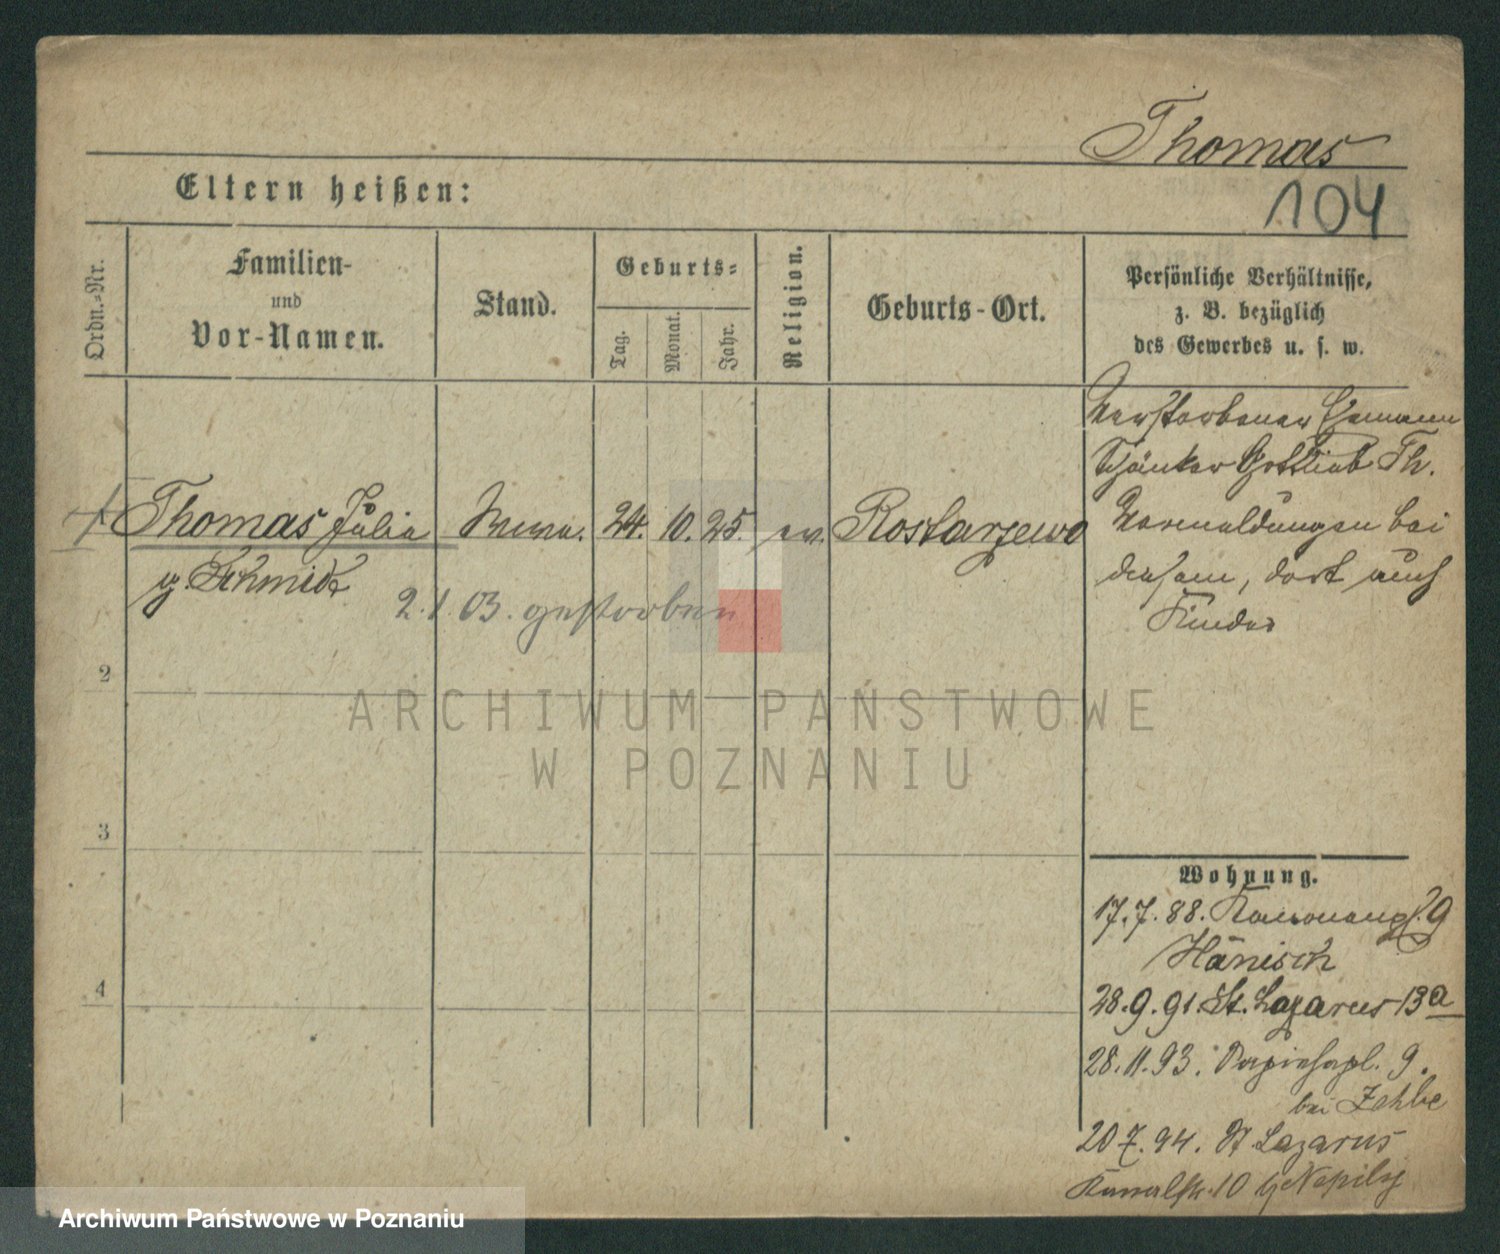 Thomas
104
Eltern heißen:
Ordn.-Nr.
Familien-
und
Vor-Namen.
Stand.
Geburts-
Tag.
Monat.
Jahr.
Religion.
Geburts-Ort.
Persönliche Verhältnisse,
z. B. bezüglich
des Gewerbes u. s. w.
Verstorbener Ehemann
Schänker Gottlieb Th.
Vermeldungen bei
diesem, dort auch
Kinder
Thomas Julia Wwe. 24. 10. 25. ev. Rostarzewo
g. Schmidt
2.1.03. gestorben
2
3
4
ARCHIWUM PAŃSTWOWE
W POZNANIU
Wohnung.
17.7.88. Kanonenpl. 9
Hänisch
28.9.91. St. Lazarus 13a
28.11.93. 9.
bei Zehbe
20.7.94. St Lazarus
Kanalstr. 10
Archiwum Państwowe w Poznaniu